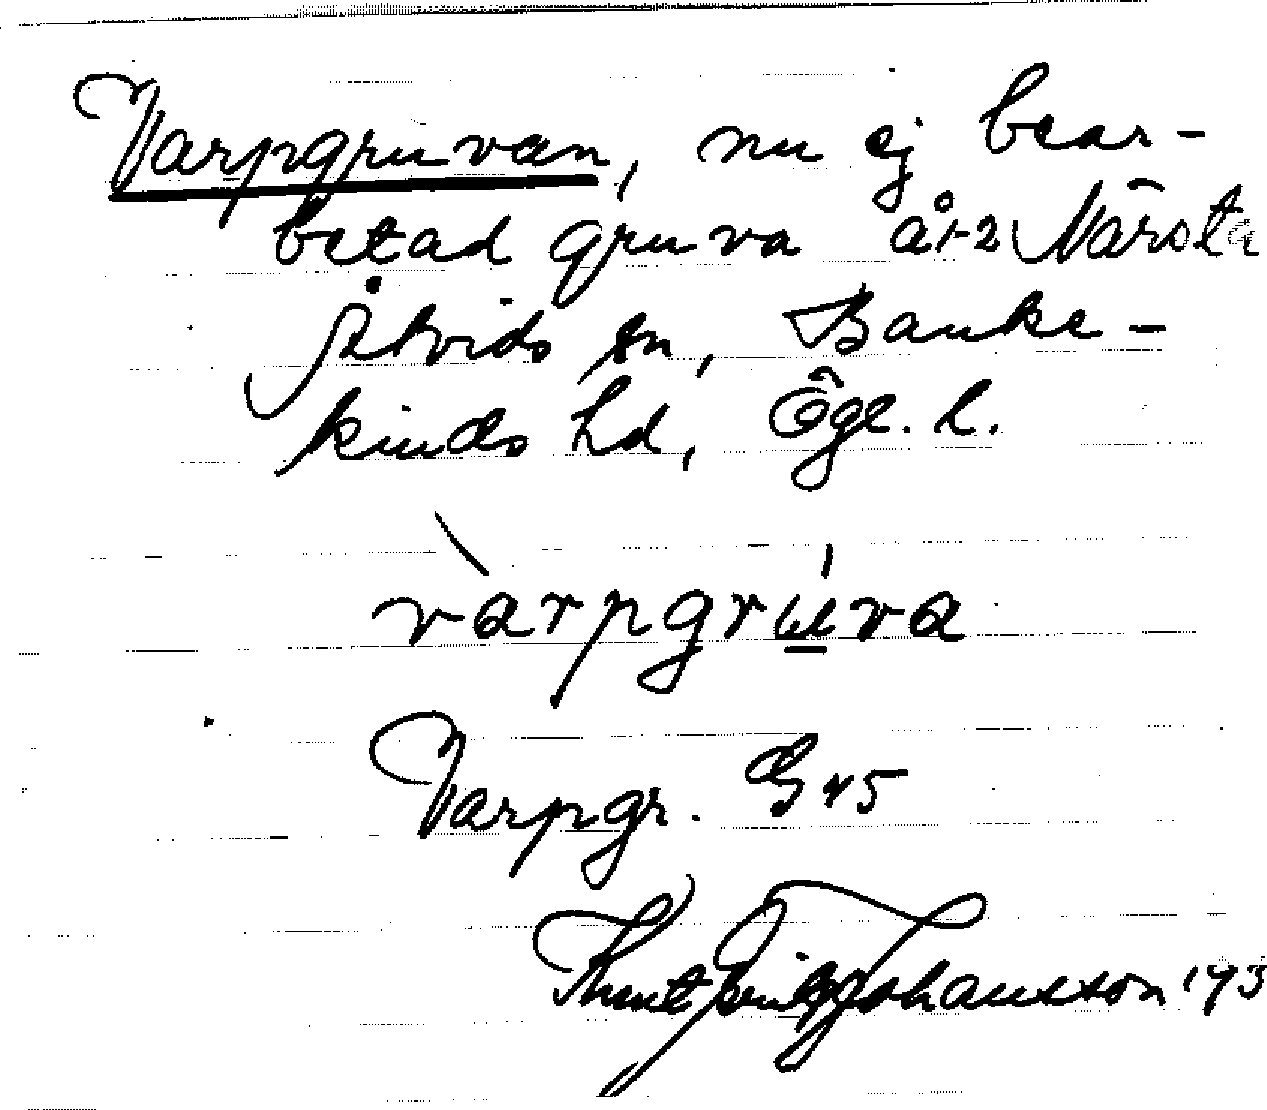 Varpgruvan, nu ej bear-
betad gruva å 1-2 Närsta
Åtvids sn, Banke-
kinds hd, Ögl. l.
vàrpgrúva
Varpgr. G 45
Knut Johansson 193